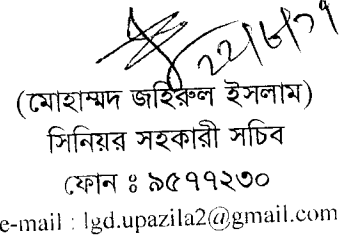 (মোহাম্মদ জহিরুল ইসলাম)
সিনিয়র সহকারী সচিব
ফোন ঃ ৯৫৭৭২৩০
e-mail : lgd.upazila2@gmail.com